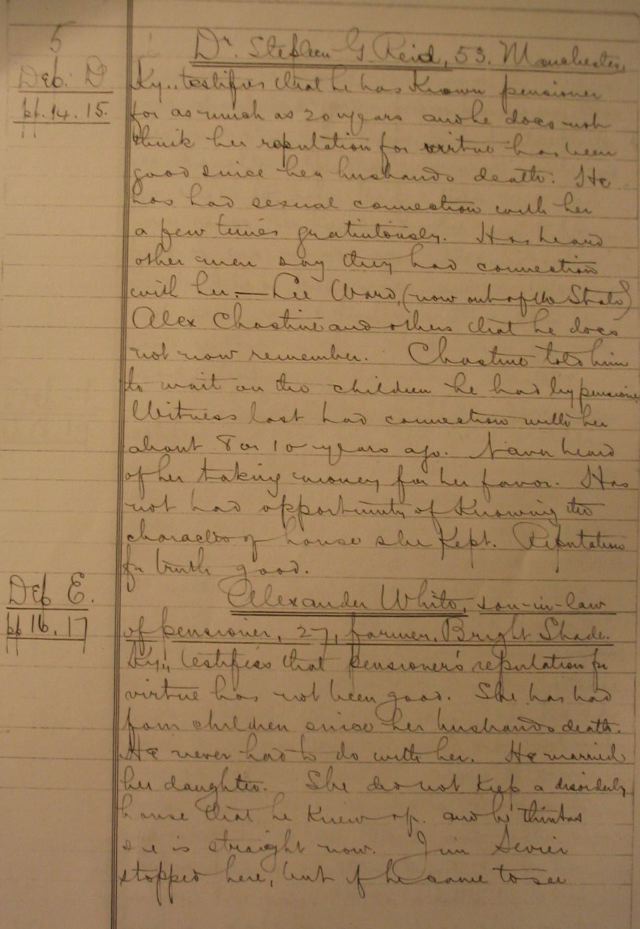 5
Dr. Stephen G. Reid, 53, Manchester,
Dep. D
pp. 14. 15.
Ky., testifies that he has known pensioner
for as much as 20 years and he does not
think her reputation for virtue has been
good since her husbands death. He
has had sexual connection with her
a few times gratuitously. Has heard
other men say they had connection
with her. — Lee Ward, (now out of the State)
Alex Chastine and others that he does
not now remember. Chastine told him
to wait on the children he had by pensioner
Witness last had connection with her
about 8 or 10 years ago. Never heard
of her taking money for her favor. Has
not had opportunity of knowing the
character of house she kept. Reputation
for truth good.
Dep E.
pp 16. 17
Alexander White, son-in-law
of pensioner, 27, farmer, Bright Shade.
Ky., testifies that pensioner's reputation for
virtue has not been good. She has had
children since her husbands death.
He never had to do with her. He married
her daughter. She did not keep a disorderly
house that he knew of. and he thinks
she is straight now. Jim Sevier
stopped here, but if he came to see